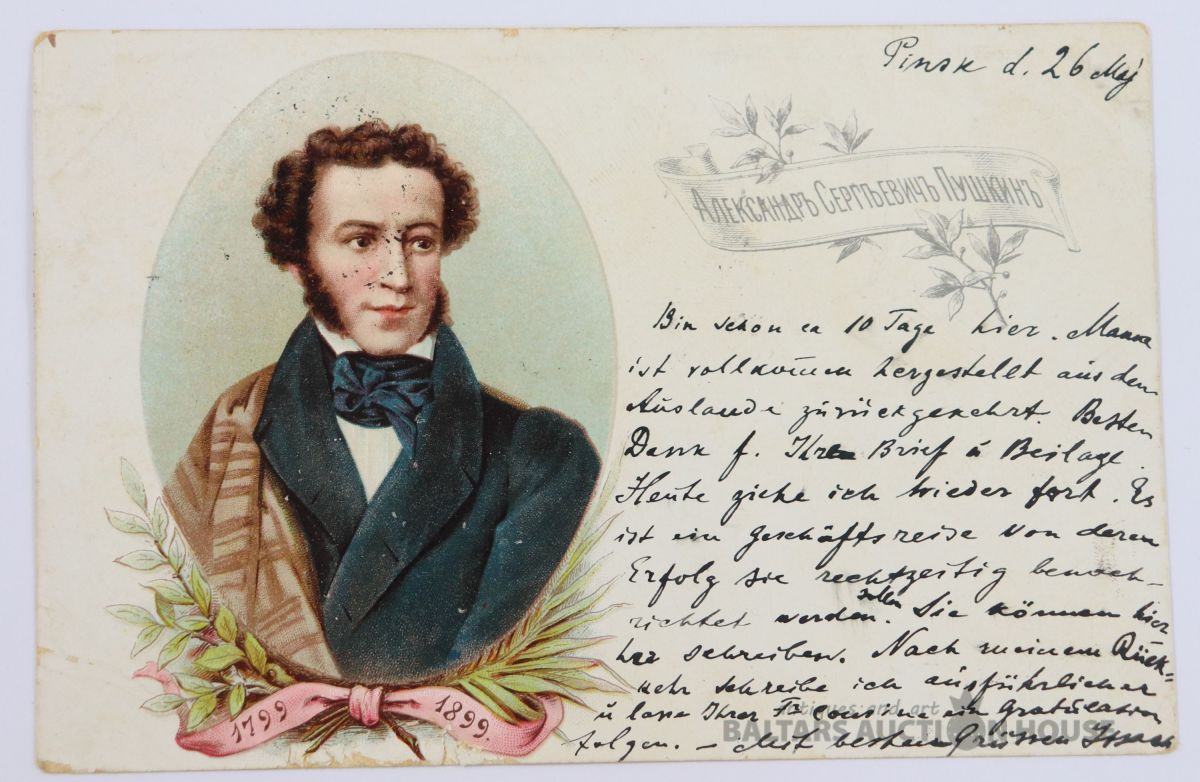 Pinsk d. 26 Maj
АЛЕКСАНДРЪ СЕРГѢЕВИЧЪ ПУШКИНЪ
Bin schon ca 10 Tage hier. Mama
ist vollkom̄en hergestellt aus dem
Auslande zurückgekehrt. Besten
Dank f. Ihren Brief u Beilage.
Heute ziehe ich wieder fort. Es
ist ein Geschäftsreise von deren
Erfolg sie rechtzeitig benach-
richtet werden sollen. Sie können hier
her schreiben. Nach meinem Rück-
kehr schreibe ich ausführlicher
u lasse Ihrer Cousine ein Gratulation
folgen. – Mit besten Grüssen
1799 1899
antiques and art
BALTARS AUCTION HOUSE